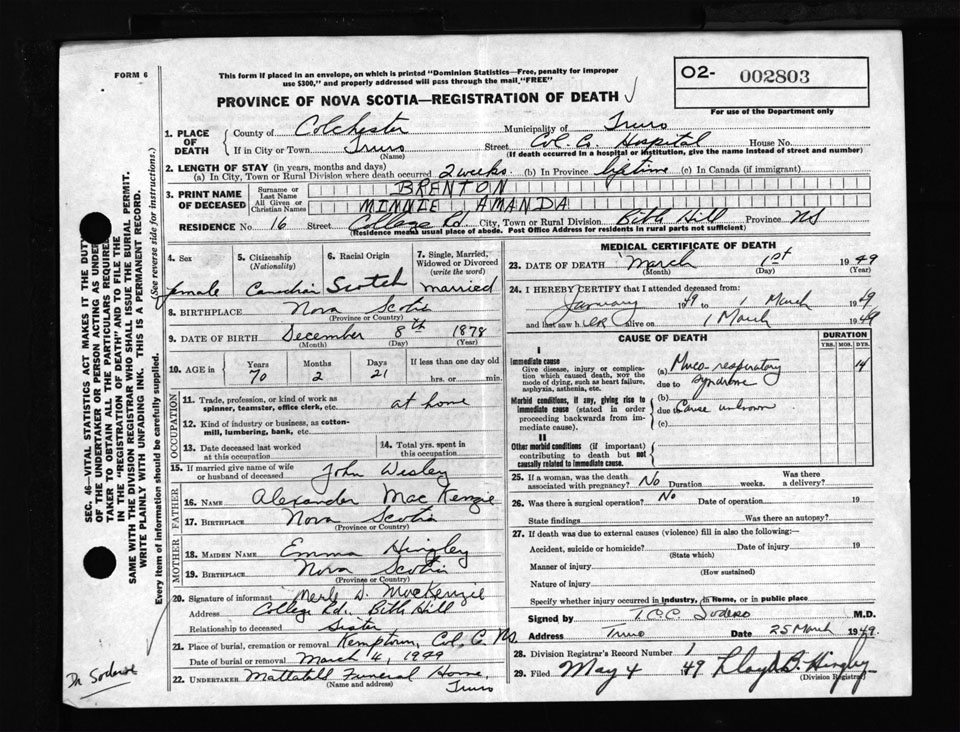 FORM 6
This form if placed in an envelope, on which is printed "Dominion Statistics—Free, penalty for improper
use $300," and properly addressed will pass through the mail, "FREE"
O2- 002803
For use of the Department only
PROVINCE OF NOVA SCOTIA—REGISTRATION OF DEATH
1. PLACE OF DEATH
County of Colchester Municipality of Truro
If in City or Town Truro Street Col. Co. Hospital House No.
(Name) (If death occurred in a hospital or institution, give the name instead of street and number)
2. LENGTH OF STAY (in years, months and days)
(a) In City, Town or Rural Division where death occurred 2 weeks. (b) In Province lifetime (c) In Canada (if immigrant)
3. PRINT NAME OF DECEASED
Surname or Last Name BRENTON
All Given or Christian Names MINNIE AMANDA
RESIDENCE No. 16 Street College Rd City, Town or Rural Division Bible Hill Province NS
(Residence means usual place of abode. Post Office Address for residents in rural parts not sufficient)
4. Sex female
5. Citizenship (Nationality) Canadian
6. Racial Origin Scotch
7. Single, Married, Widowed or Divorced (write the word) married
8. BIRTHPLACE Nova Scotia
(Province or Country)
9. DATE OF BIRTH December 8th 1878
(Month) (Day) (Year)
10. AGE in Years 70 Months 2 Days 21 If less than one day old
hrs. or min.
OCCUPATION
11. Trade, profession, or kind of work as
spinner, teamster, office clerk, etc. at home
12. Kind of industry or business, as cotton-
mill, lumbering, bank, etc.
13. Date deceased last worked
at this occupation
14. Total yrs. spent in
this occupation
15. If married give name of wife
or husband of deceased John Wesley
FATHER
16. NAME Alexander MacKenzie
17. BIRTHPLACE Nova Scotia
(Province or Country)
MOTHER
18. MAIDEN NAME Emma Hingley
19. BIRTHPLACE Nova Scotia
(Province or Country)
20. Signature of informant Merle D. MacKenzie
Address College Rd. Bible Hill
Relationship to deceased Sister
21. Place of burial, cremation or removal Kemptown, Col. Co. NS
Date of burial or removal March 4, 1949
22. UNDERTAKER Mattatall Funeral Home,
(Name and address) Truro
MEDICAL CERTIFICATE OF DEATH
23. DATE OF DEATH March 1st 1949
(Month) (Day) (Year)
24. I HEREBY CERTIFY that I attended deceased from:
January 1949 to 1 March 1949
and last saw her alive on 1 March 1949
CAUSE OF DEATH
DURATION
YRS. MOS. DYS.
I
Immediate cause
Give disease, injury or complica-
tion which caused death, NOT the
mode of dying, such as heart failure,
asphyxia, asthenia, etc.
(a) Muco-respiratory 14
due to syndrome
Morbid conditions, if any, giving rise to
immediate cause (stated in order
proceeding backwards from im-
mediate cause).
(b)
due to Cause unknown
(c)
II
Other morbid conditions (if important)
contributing to death but not
causally related to immediate cause.
25. If a woman, was the death
associated with pregnancy? No Duration weeks. Was there
a delivery?
26. Was there a surgical operation? No Date of operation 19
State findings Was there an autopsy?
27. If death was due to external causes (violence) fill in also the following:—
Accident, suicide or homicide? Date of injury 19
(State which)
Manner of injury
(How sustained)
Nature of injury
Specify whether injury occurred in industry, in home, or in public place
Signed by T.C.C. Sodero M.D.
Address Truro Date 25 March 1949.
28. Division Registrar's Record Number 1
29. Filed May 4 1949 Lloyd B. Hingley
(Division Registrar)
SEC. 46—VITAL STATISTICS ACT MAKES IT THE DUTY
OF THE UNDERTAKER OR PERSON ACTING AS UNDER-
TAKER TO OBTAIN ALL THE PARTICULARS REQUIRED
IN THE "REGISTRATION OF DEATH" AND TO FILE THE
SAME WITH THE DIVISION REGISTRAR WHO SHALL ISSUE THE BURIAL PERMIT.
WRITE PLAINLY WITH UNFADING INK. THIS IS A PERMANENT RECORD.
Every item of information should be carefully supplied. (See reverse side for instructions.)
Dr Sodero